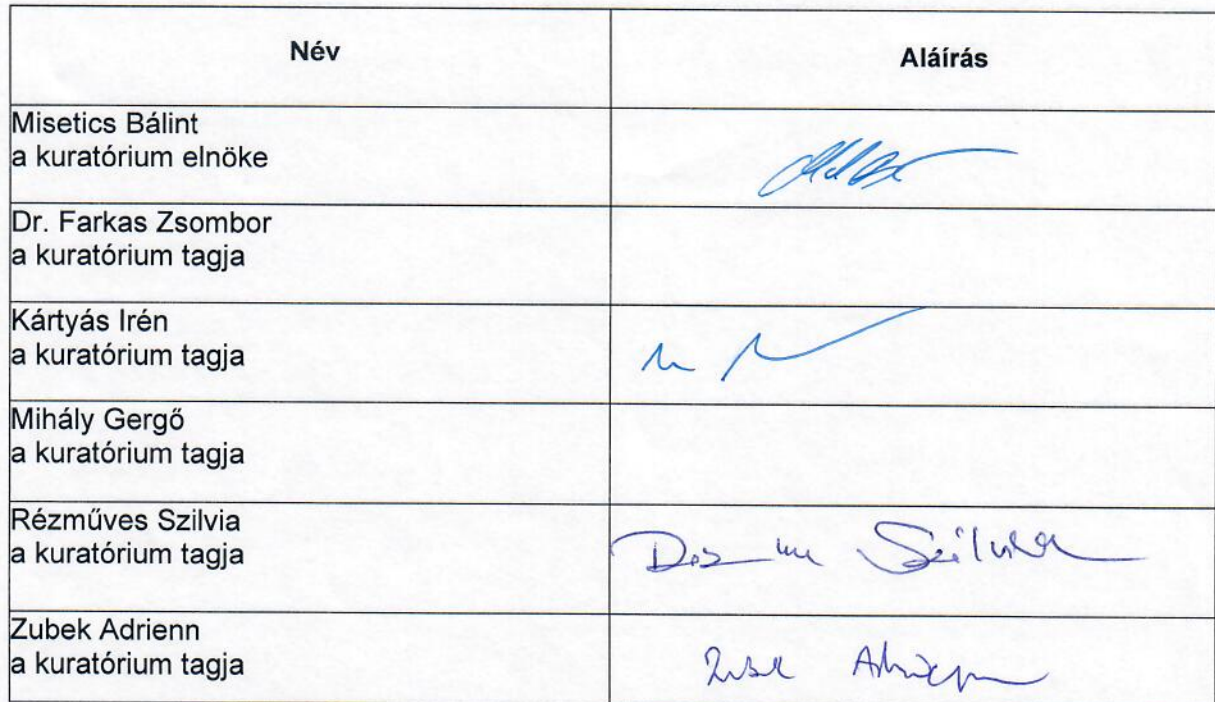 Név
Aláírás
Misetics Bálint
a kuratórium elnöke
Dr. Farkas Zsombor
a kuratórium tagja
Kártyás Irén
a kuratórium tagja
Mihály Gergő
a kuratórium tagja
Rézműves Szilvia
a kuratórium tagja
Szilvia
Zubek Adrienn
a kuratórium tagja